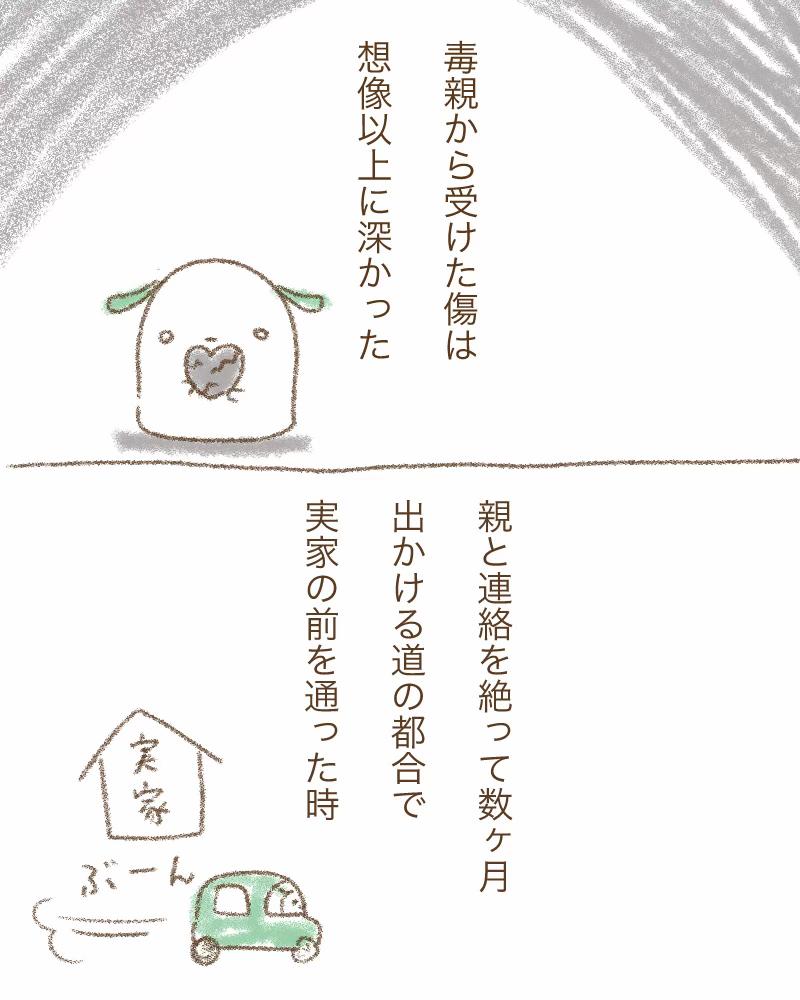 毒親から受けた傷は
想像以上に深かった
親と連絡を絶って数ヶ月
出かける道の都合で
実家の前を通った時
実家
ぶーん